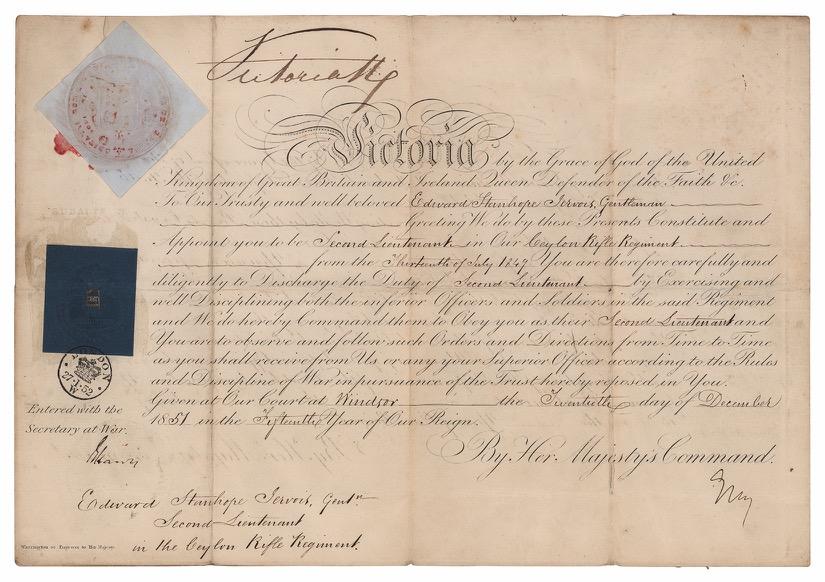 Victoria R
Victoria by the Grace of God of the United
Kingdom of Great Britain and Ireland, Queen, Defender of the Faith &c.
To Our Trusty and well beloved Edward Stanhope Jervois, Gentleman
Greeting We do by these Presents Constitute and
Appoint you to be Second Lieutenant in Our Ceylon Rifle Regiment
from the Thirteenth of July 1849 You are therefore carefully and
diligently to Discharge the Duty of Second Lieutenant by Exercising and
well Disciplining both the inferior Officers and Soldiers in the said Regiment
and We do hereby Command them to Obey you as their Second Lieutenant and
You are to observe and follow such Orders and Directions from Time to Time
as you shall receive from Us or any your Superior Officer according to the Rules
and Discipline of War in pursuance of the Trust hereby reposed in You.
Given at Our Court at Windsor the Twentieth day of December
1851 in the Fifteenth Year of Our Reign.
By Her Majesty's Command.
LONDON
21·1·52
W
Entered with the
Secretary at War.
Edward Stanhope Jervois, Gentn
Second Lieutenant
in the Ceylon Rifle Regiment.
Engraver to Her Majesty